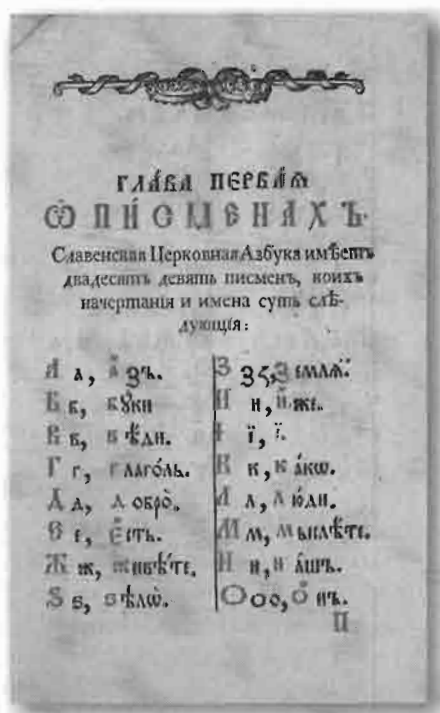 ГЛА́ВА ПЕРВАѦ
Ѽ ПИ́СМЕНАХЪ.
Славенская Церковная Азбука имѣетъ
двадесять девять писменъ, коихъ
начертанія и имена суть слѣ-
дующія:
А а, а҆́зъ.
Б б, бꙋ́ки
В в, вѣ́ди.
Г г, глаго́ль.
Д д, добро̀.
Є е, є҆́сть.
Ж ж, живѣ́те.
Ѕ ѕ, ѕѣлѡ̀.
З зз, землѧ̀.
И и, и҆́же.
І ї, і҆.
К к, ка́кѡ.
Л л, лю́ди.
М м, мыслѣ́те.
Н н, на́шъ.
О оо, ѻ҆́нъ.
П